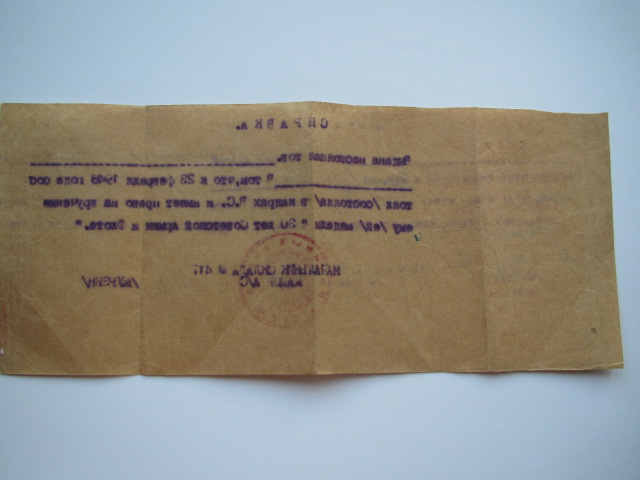 СПРАВКА.
Выдана настоящая тов.
В том, что к 23 февраля 1948 года сос
тоял /состояла/ в кадрах В.С. и имеет право на вручение
ему /ей/ медали " 30 лет Советской Армии и Флота".
НАЧАЛЬНИК СКЛАДА № 41:
А/С